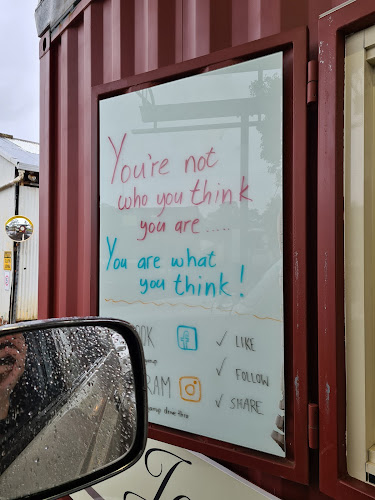 You're not
who you think
you are .....
You are what
you think !
✓ LIKE
✓ FOLLOW
✓ SHARE